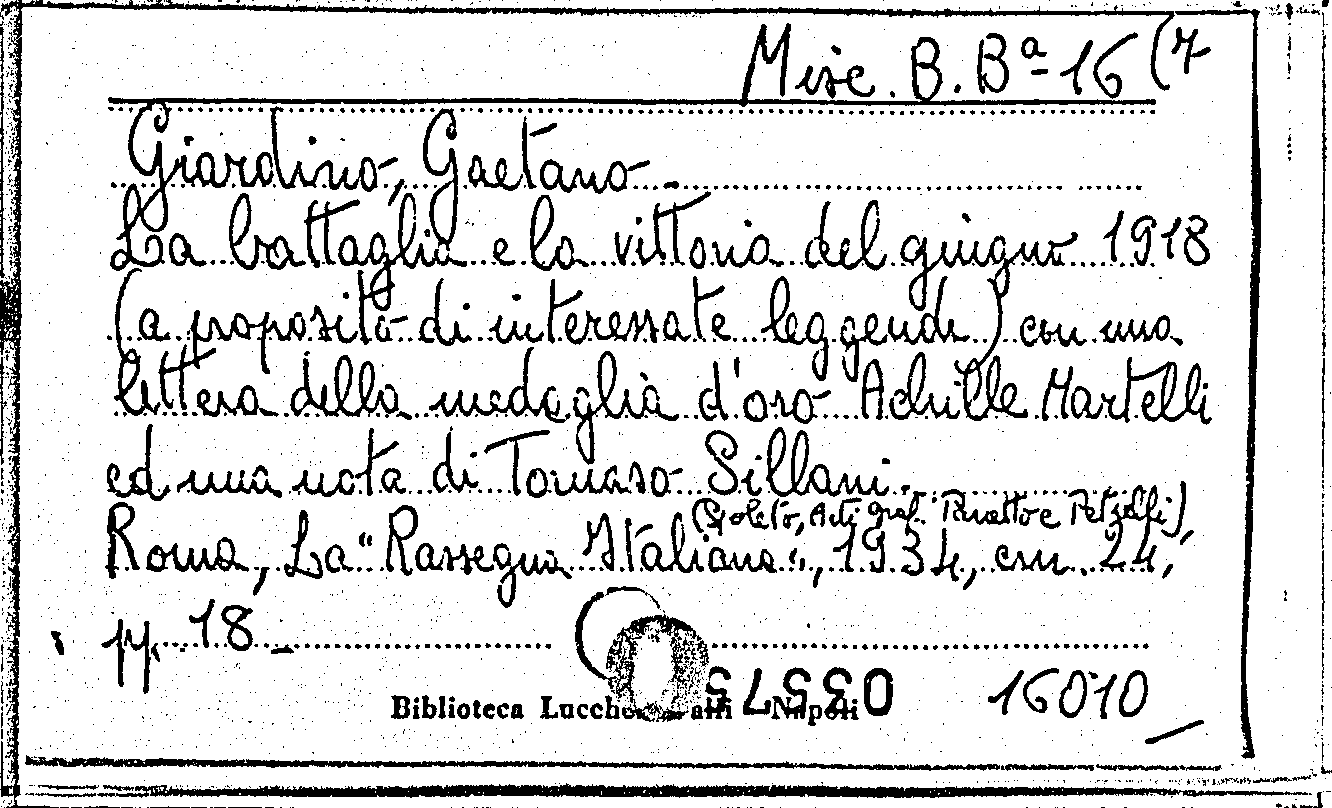 Misc. B. Bª - 16 (7
Giardino, Gaetano -
La battaglia e la vittoria del giugno 1918
(a proposito di interessate leggende) con una
lettera della medaglia d'oro Achille Martelli
ed una nota di Tomaso Sillani.
(Spoleto, Arti graf. Panetto e Petrelli),
Roma, La "Rassegna Italiana", 1934, cm. 24,
pp. 18 -
Biblioteca Napoli
16010